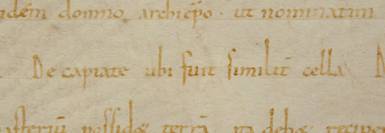 idem domno archiep̄o · ut nominatim
De capiate ubi fuit similit̄ cella
possides terrā